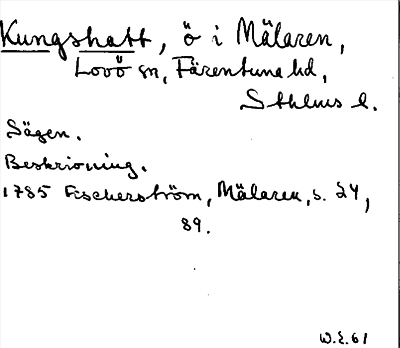 Kungshatt, ö i Mälaren,
Lovö sn, Färentuna hd,
Sthlms l.
Sägen.
Beskrivning.
1785 Fischerström, Mälaren, s. 24,
89.
W.E. 61